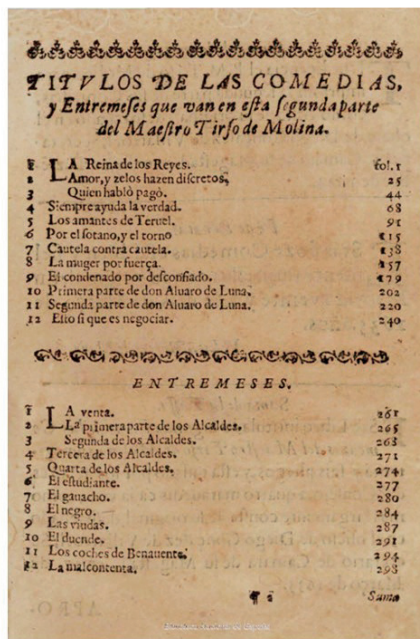 TITVLOS DE LAS COMEDIAS,
y Entremeses que van en esta segunda parte
del Maestro Tirso de Molina.
1 LA Reina de los Reyes. fol.1
2 Amor, y zelos hazen discretos, 25
3 Quien habló pagó. 44
4 Siempre ayuda la verdad. 68
5 Los amantes de Teruel. 91
6 Por el sotano, y el torno 115
7 Cautela contra cautela. 138
8 La muger por fuerça. 157
9 El condenado por desconfiado. 179
10 Primera parte de don Aluaro de Luna. 202
11 Segunda parte de don Aluaro de Luna. 220
12 Esto si que es negociar. 240
ENTREMESES.
1 LA venta. 261
2 La primera parte de los Alcaldes. 265
3 Segunda de los Alcaldes. 268
4 Tercera de los Alcaldes. 271
5 Quarta de los Alcaldes. 274
6 El estudiante. 277
7 El gauacho. 280
8 El negro. 284
9 Las viudas. 287
10 El duende. 291
11 Los coches de Benauente. 294
12 La malcontenta. 298
Suma